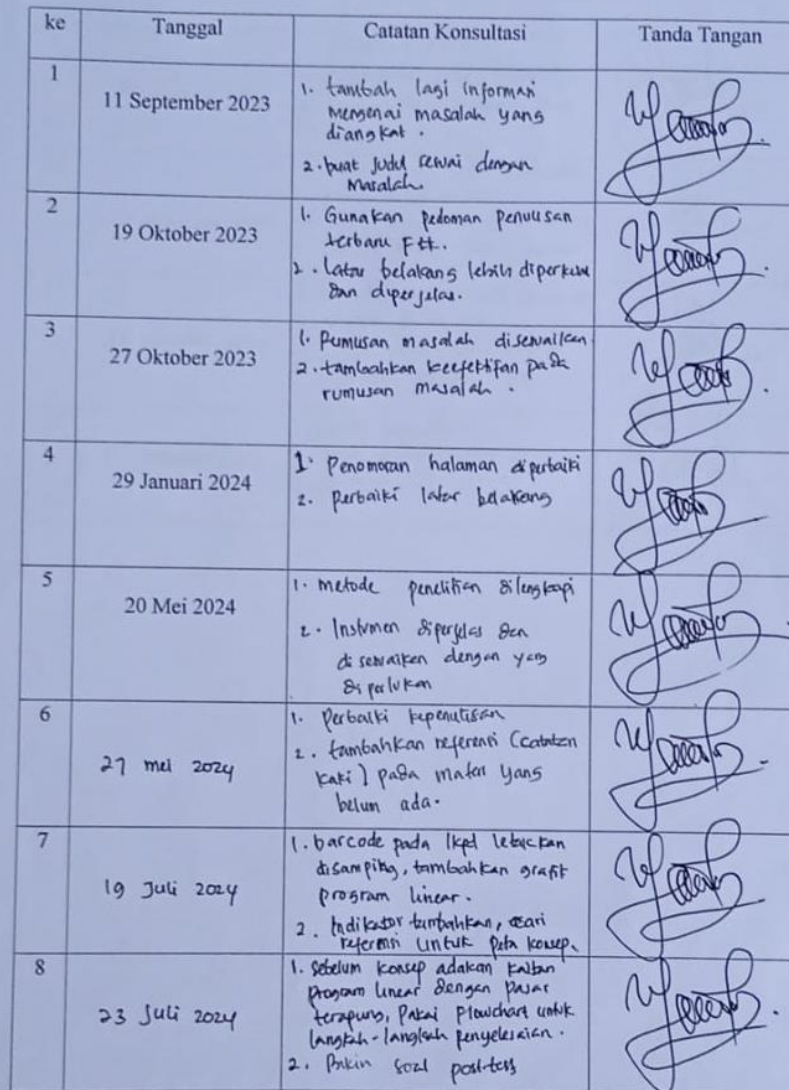 ke Tanggal Catatan Konsultasi Tanda Tangan
1
11 September 2023
1. tambah lagi informasi
mengenai masalah yang
diangkat.
2. buat judul sesuai dengan
masalah
2
19 Oktober 2023
1. Gunakan pedoman penulisan
terbaru FTK.
2. latar belakang lebih diperkuat
dan diperjelas.
3
27 Oktober 2023
1. Rumusan masalah disesuaikan
2. tambahkan keefektifan pada
rumusan masalah.
4
29 Januari 2024
1. Penomoran halaman diperbaiki
2. perbaiki latar belakang
5
20 Mei 2024
1. metode penelitian dilengkapi
2. Instrumen diperjelas dan
disesuaikan dengan yang
diperlukan
6
27 mei 2024
1. Perbaiki kepenulisan
2. tambahkan referensi (catatan
kaki) pada materi yang
belum ada.
7
19 Juli 2024
1. barcode pada lkpd letakkan
disamping, tambahkan grafik
program linear.
2. Indikator tambahkan, cari
referensi untuk peta konsep.
8
23 Juli 2024
1. Sebelum konsep adakan kaitan
program linear dengan pasar
terapung, Pakai Flowchart untuk
langkah-langkah penyelesaian.
2. Bikin soal post-tess